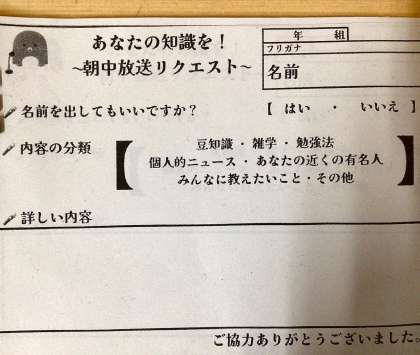 あなたの知識を！
~朝中放送リクエスト~
年 組
フリガナ
名前
名前を出してもいいですか？ 【 はい ・ いいえ 】
内容の分類
【 豆知識 ・ 雑学 ・ 勉強法
個人的ニュース ・ あなたの近くの有名人
みんなに教えたいこと・その他 】
詳しい内容
ご協力ありがとうございました。